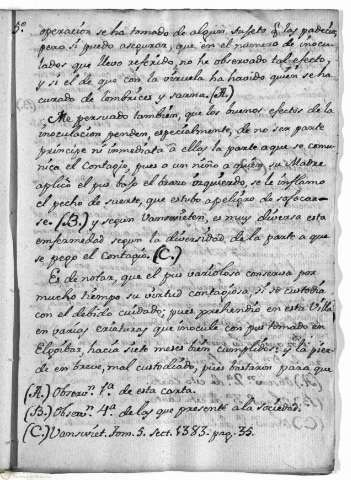 5º
operacion se ha tomado de algun sujeto q. las padecia,
pero si puedo asegurar, que en el numero de inocu-
lados que llevo referido, no he observado tal efecto;
y si el de que con la viruela ha havido quien se ha
curado de lombrices y sarna. (A.)
Me persuado tambien, que los buenos efectos de la
inoculacion penden, especialmente, de no ser parte
principe ni immediata a ellas la parte aque se comu-
nica el Contagio, pues a un niño a quien su Madre
aplicò el pus baxo el brazo izquierdo, se le inflamò
el pecho de suerte, que estubo a peligro de sofocar-
se. (B.) y segun Vanswieten, es muy diversa esta
enfermedad segun la diversidad de la parte a que
se pegò el Contagio. (C.)
Es de notar, que el pus varioloso conserva por
mucho tiempo su virtud contagiosa, si se custodia
con el debido cuidado; pues prehendiò en esta Villa
en varias criaturas que inoculè con pus tomado en
Elgoibar, hacia siete meses bien cumplidos: y la pier-
de en breve, mal custodiado, pues bastaron para que
(A.) Observon. 1ª. de esta carta.
(B.) Observon. 4ª. de las que presentè a la Sociedad.
(C.) Vanswiet. Tom. 5. Sect. 1383. pag. 35.